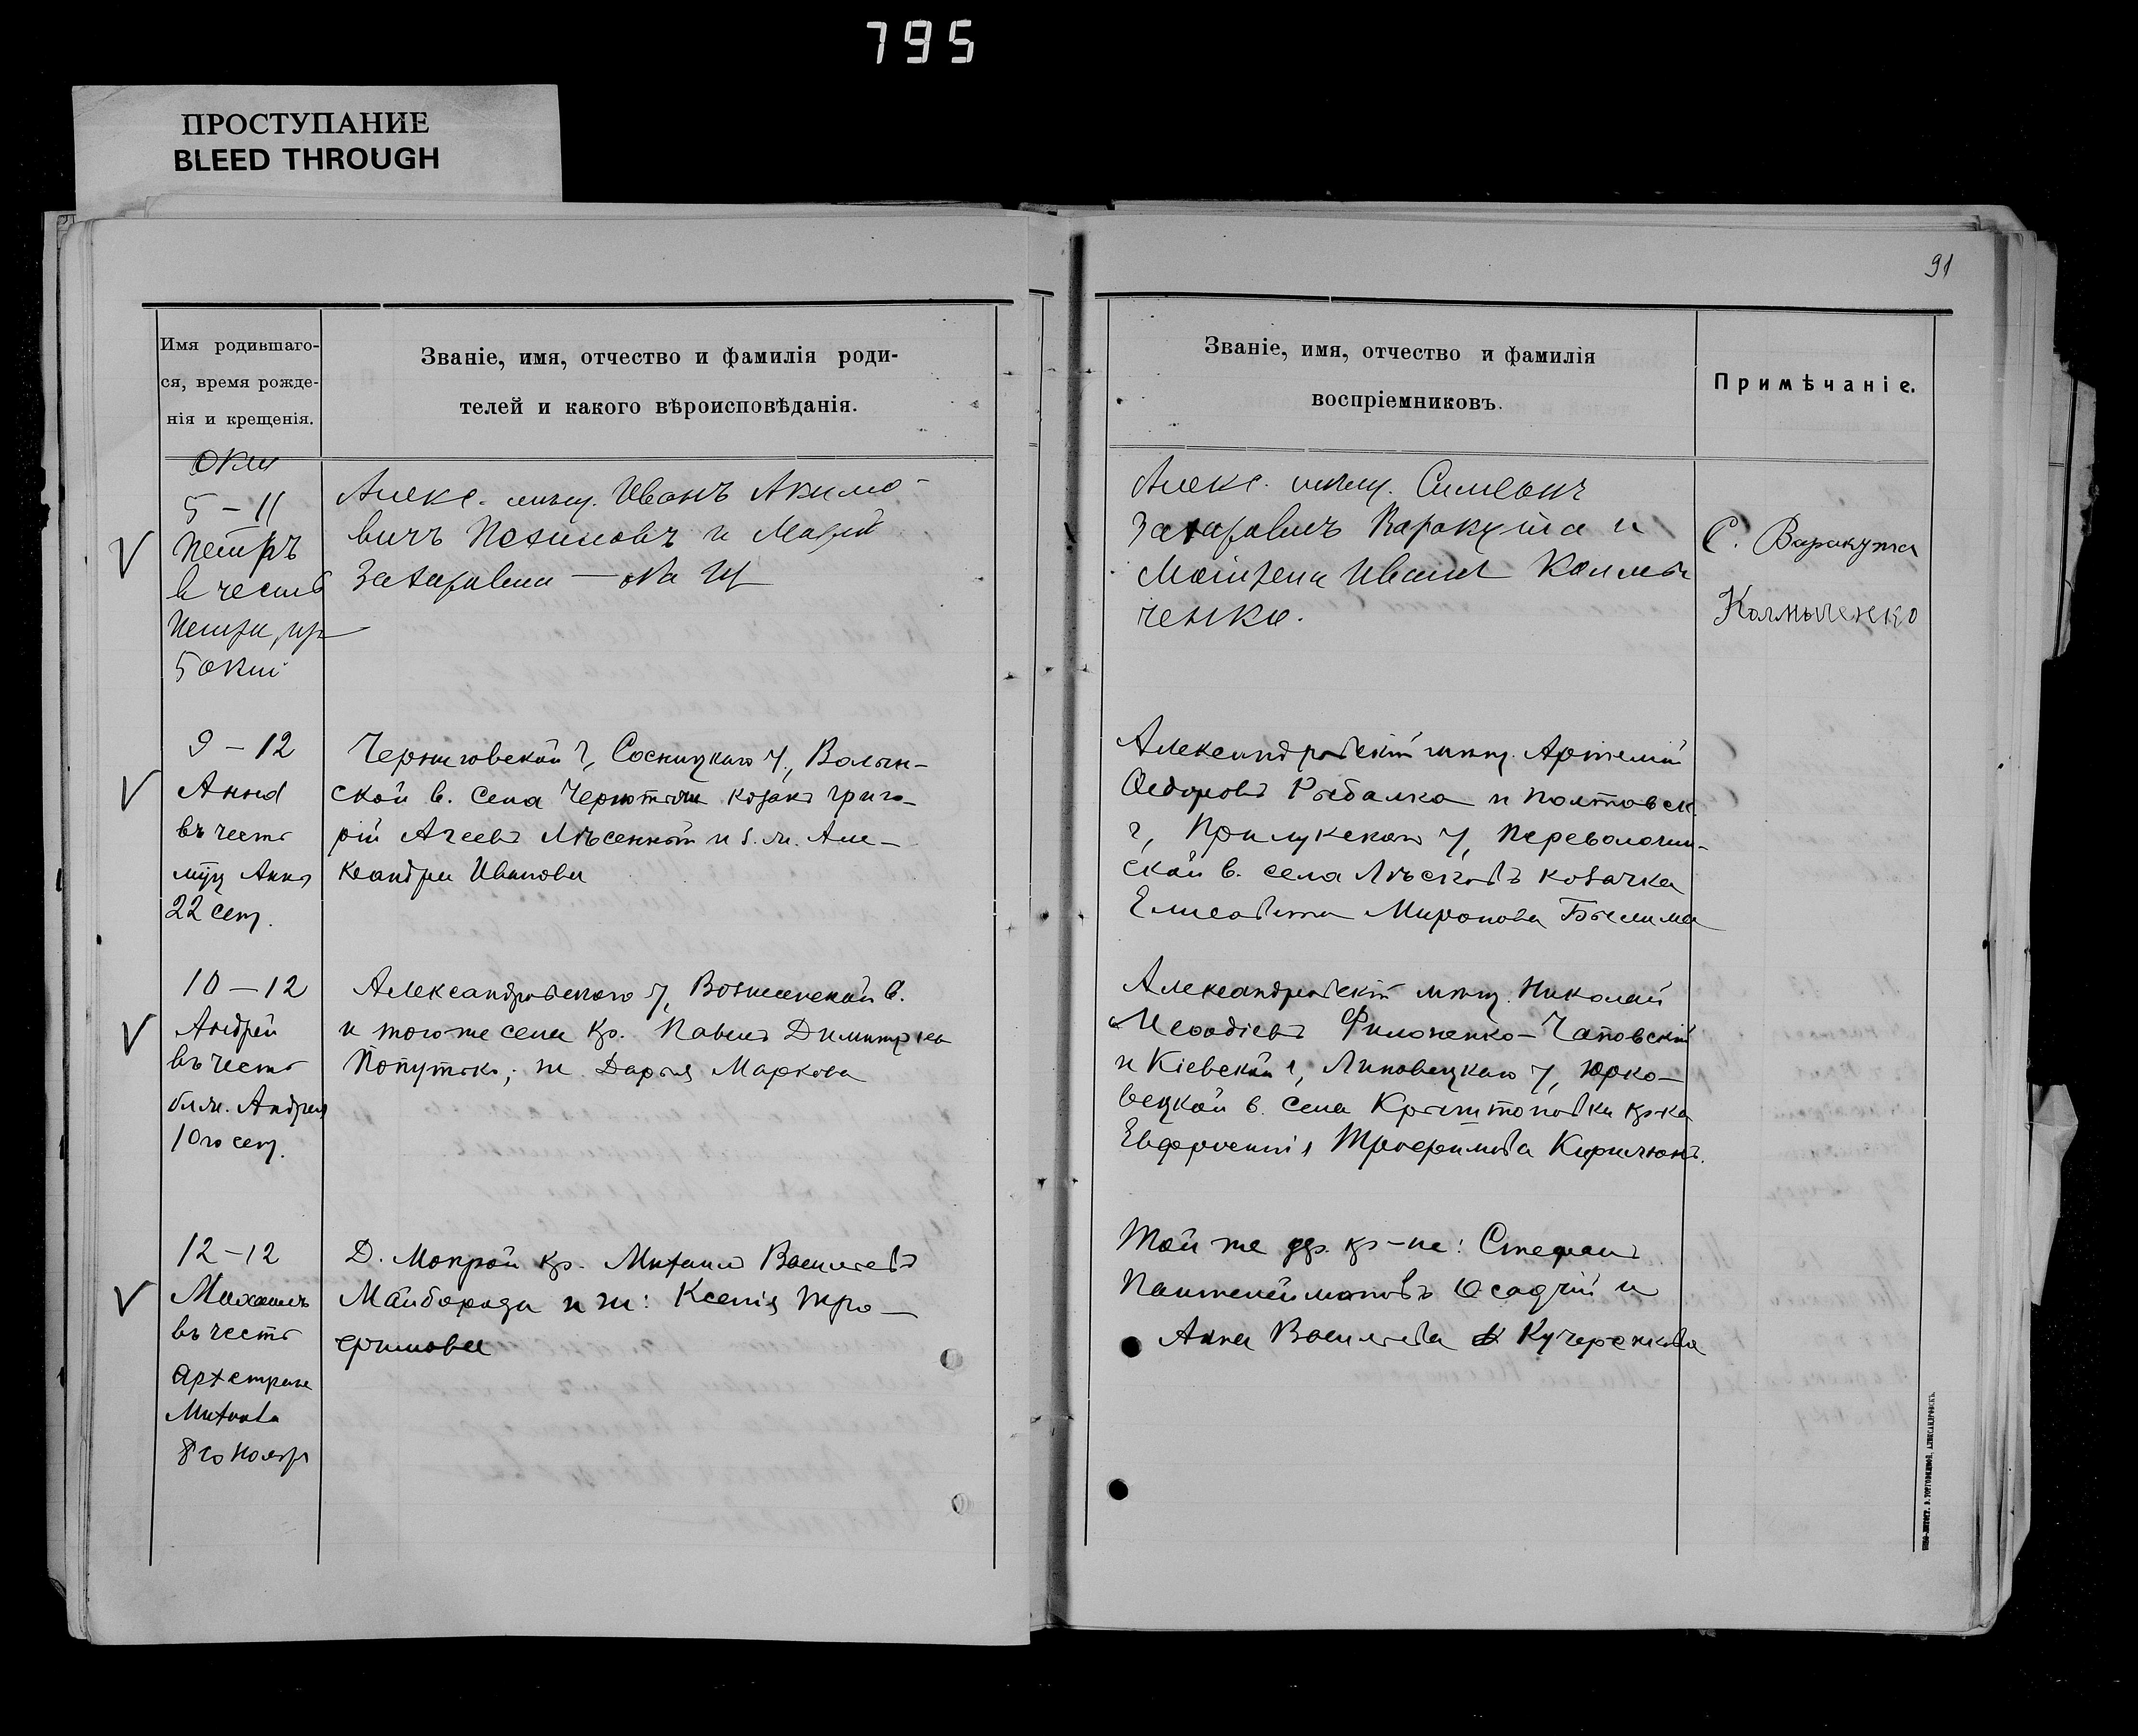 795
ПРОСТУПАНИЕ
BLEED THROUGH
91
Имя родившаго-
ся, время рожде-
нія и крещенія.
Званіе, имя, отчество и фамилія роди-
телей и какого вѣроисповѣданія.
Званіе, имя, отчество и фамилія
воспріемниковъ.
Примѣчаніе.
5 – 11
Петръ
в честь
5 окт
Алекс. мѣщ. Иванъ Акимо-
вичъ и Марія
Алекс. мѣщ. Симеонъ
Захаровичъ Варакута и
Ивановна Колмы
ченко.
С. Варакута
Колмыченко
9 – 12
Анна
въ честь
муц Анны
22 сент.
Черниговской г, Сосницкаго у, Волын-
ской в. села козакъ Григо-
рій Агеевъ и з. ж. Але-
ксандра Иванова
Александровскій мѣщ. Артемій
Ѳедоровъ Рыбалка и Полтавск.
г, Прилукскаго у, Переволочан-
ской в. села козачка
Елисавета Миронова
10 – 12
Андрей
въ честь
Андрея
10го сент.
Александровскаго у, Вознесенской в.
и тогоже села кр. Павелъ
ж. Дарья Маркова
Александровскій мѣщ. Николай
Меѳодіевъ Филоненко-
и Кіевской г, Липовецкаго у, Юрко-
вецкой в. села кр-ка
Евфросинія Трофимова
12 – 12
Михаилъ
въ честь
Архстратига
Михаила
8го Ноября
Д. Мокрой кр. Михаилъ Васильевъ
Майборода и ж: Ксенія Тро-
фимова
Той же др. кр-не: Стефанъ
Пантелеймоновъ Осадчій и
Анна Васильева Кучеренкова